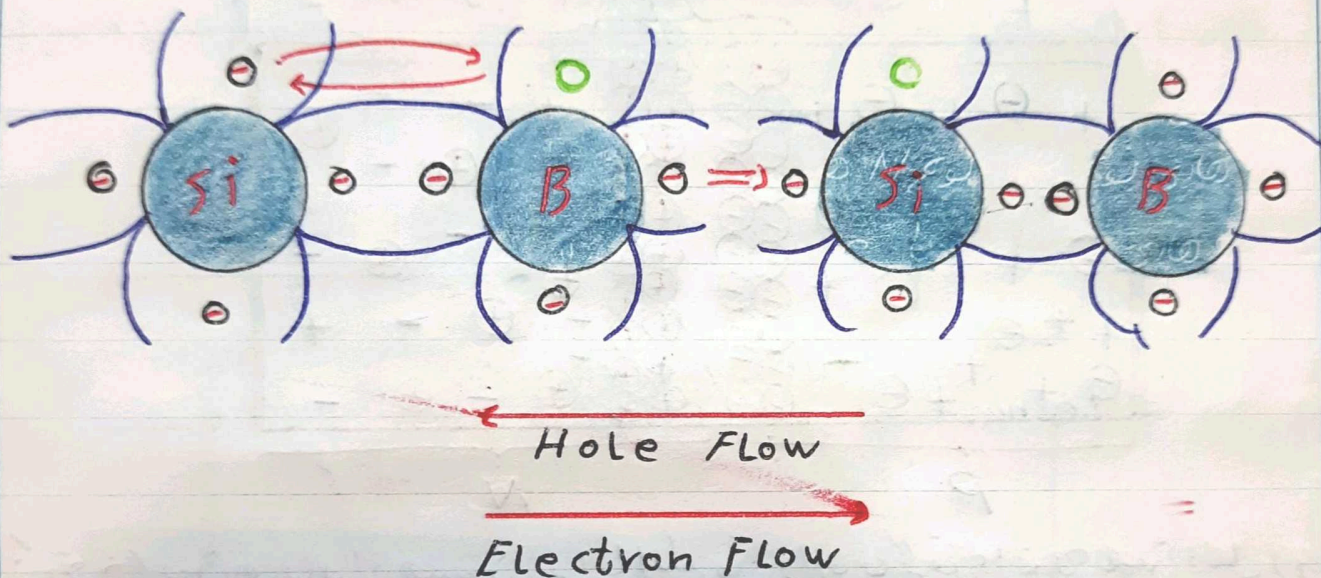 Si B Si B
Hole Flow
Electron Flow